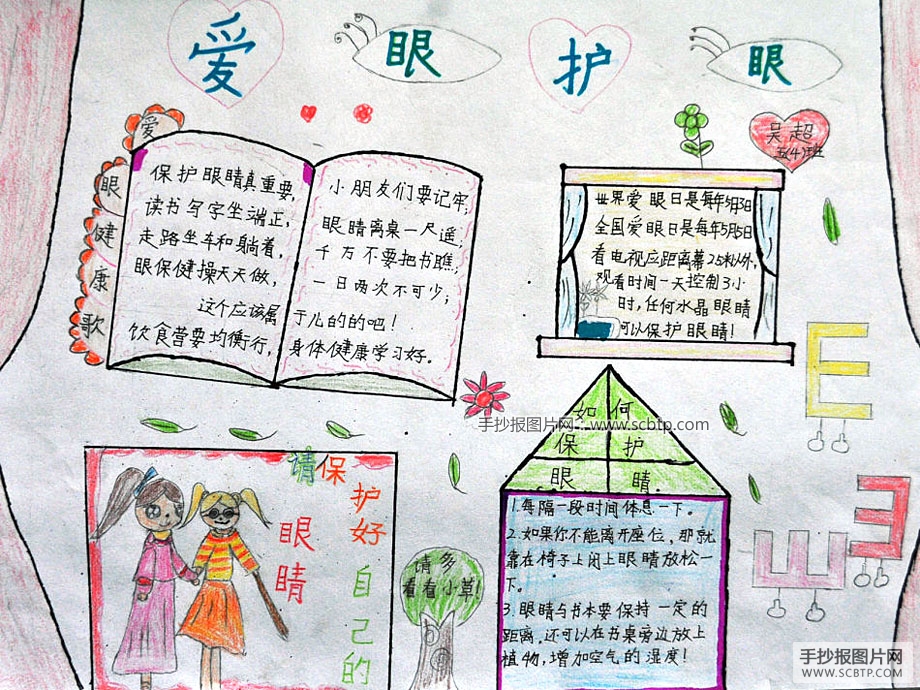 爱眼护眼
吴超
五(4)班
爱眼健康歌
保护眼睛真重要,
读书写字坐端正,
走路坐车和躺着,
眼保健操天天做,
这个应该属
饮食营要均衡行,
小朋友们要记牢;
眼睛离桌一尺遥;
千万不要把书瞧;
一日两次不可少;
于儿的的吧!
身体健康学习好。
世界爱眼日是每年5月3日
全国爱眼日是每年5月5日
看电视应距离幕2.5米以外,
观看时间一天控制3小
时,任何水晶眼睛
可以保护眼睛!
手抄报图片网:www.scbtp.com
如何
保护
眼睛
1.每隔一段时间休息一下。
2.如果你不能离开座位,那就
靠在椅子上闭上眼睛放松一
下。
3.眼睛与书本要保持一定的
距离.还可以在书桌旁边放上
植物,增加空气的湿度!
请保护好自己的
眼睛
请多
看看小草!
E
E
E
手抄报图片网
WWW.SCBTP.COM